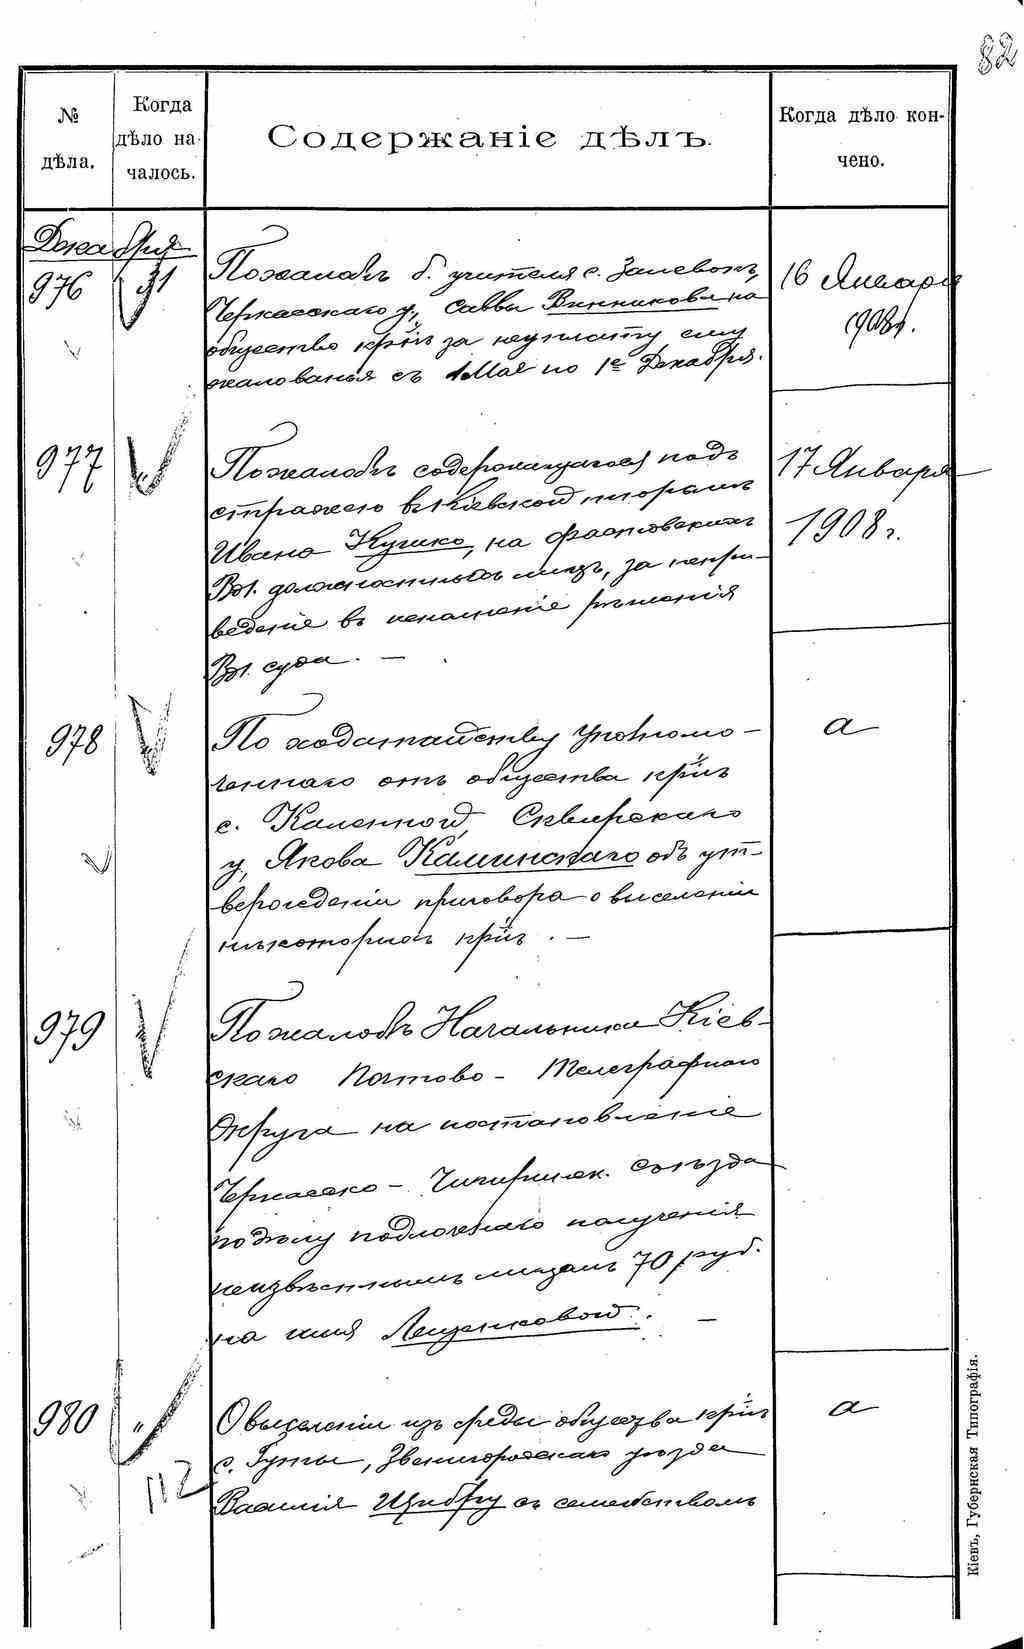 82
№ дѣла.
Когда дѣло началось.
Содержаніе дѣлъ.
Когда дѣло кончено.
Декабря
976 31
По жалобѣ б. учителя с. Залевокъ,
Черкасскаго у., Саввы Винникова на
общество кр̃нъ за неуплату ему
жалованья съ 1 Мая по 1е Декабря.
16 Января
1908г.
977 "
По жалобѣ содержащагося подъ
стражею въ Кіевской тюрьмѣ
Ивана Кучико, на Фастовскихъ
Вол. должностныхъ лицъ, за непри-
веденіе въ исполненіе рѣшенія
Вол. суда. —
17 Января
1908 г.
978 "
По ходатайству уполномо-
ченнаго отъ общества кр̃нъ
с. Каленной, Сквирскаго
у, Якова Каминскаго объ ут-
вержденіи приговора о выселеніи
нѣкоторыхъ кр̃нъ. —
а
979
По жалобѣ Начальника Кіев-
скаго Почтово-Телеграфнаго
Округа на постановленіе
Черкасско-Чигиринск. съѣзда
по дѣлу подложнаго полученія
неизвѣстнымъ лицамъ 70 руб.
на имя Лещенковой. —
980 "
112
О выселеніи изъ среды общества кр̃нъ
с. Гуты, Звенигородскаго уѣзда
Василія Щибру съ семействомъ
а
Кіевъ, Губернская Типографія.